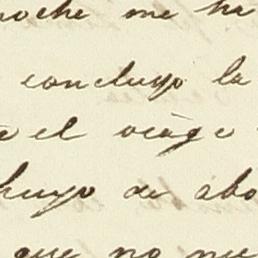 noche me ha
concluyo la
el viage
huyo de abo
que no me